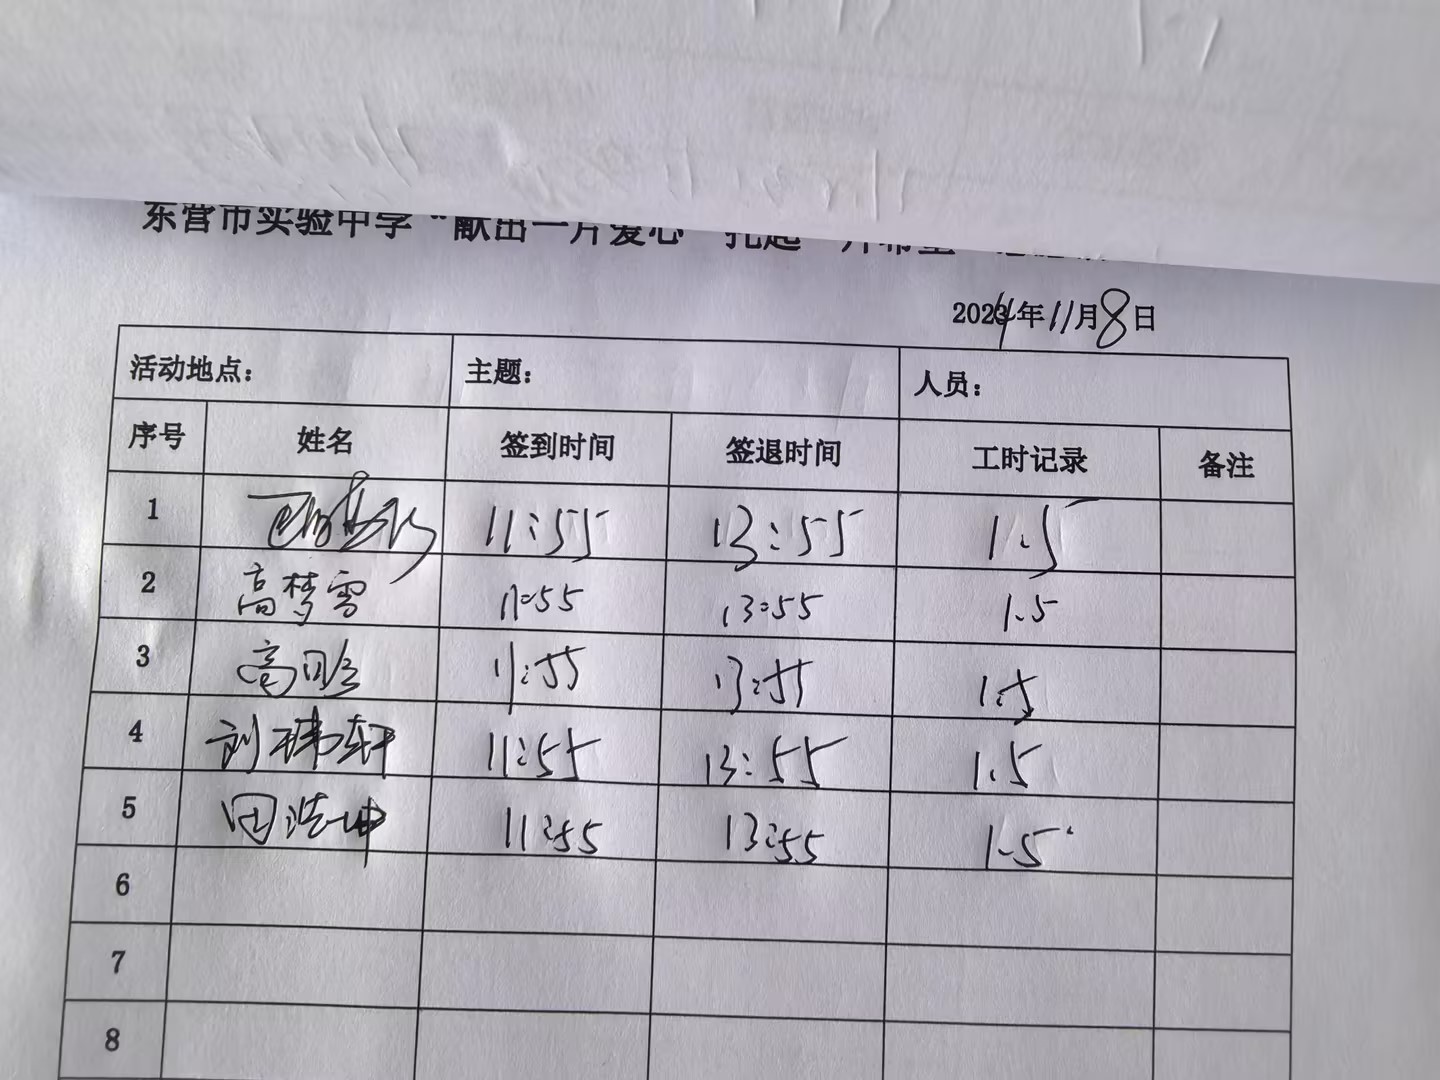 东营市实验中学“献出一片爱心 托起一片希望
2024年11月8日
活动地点： 主题： 人员：
序号 姓名 签到时间 签退时间 工时记录 备注
1 11:55 13:55 1.5
2 高梦雪 11:55 13:55 1.5
3 11:55 13:55 1.5
4 刘玮轩 11:55 13:55 1.5
5 田浩坤 11:55 13:55 1.5
6
7
8